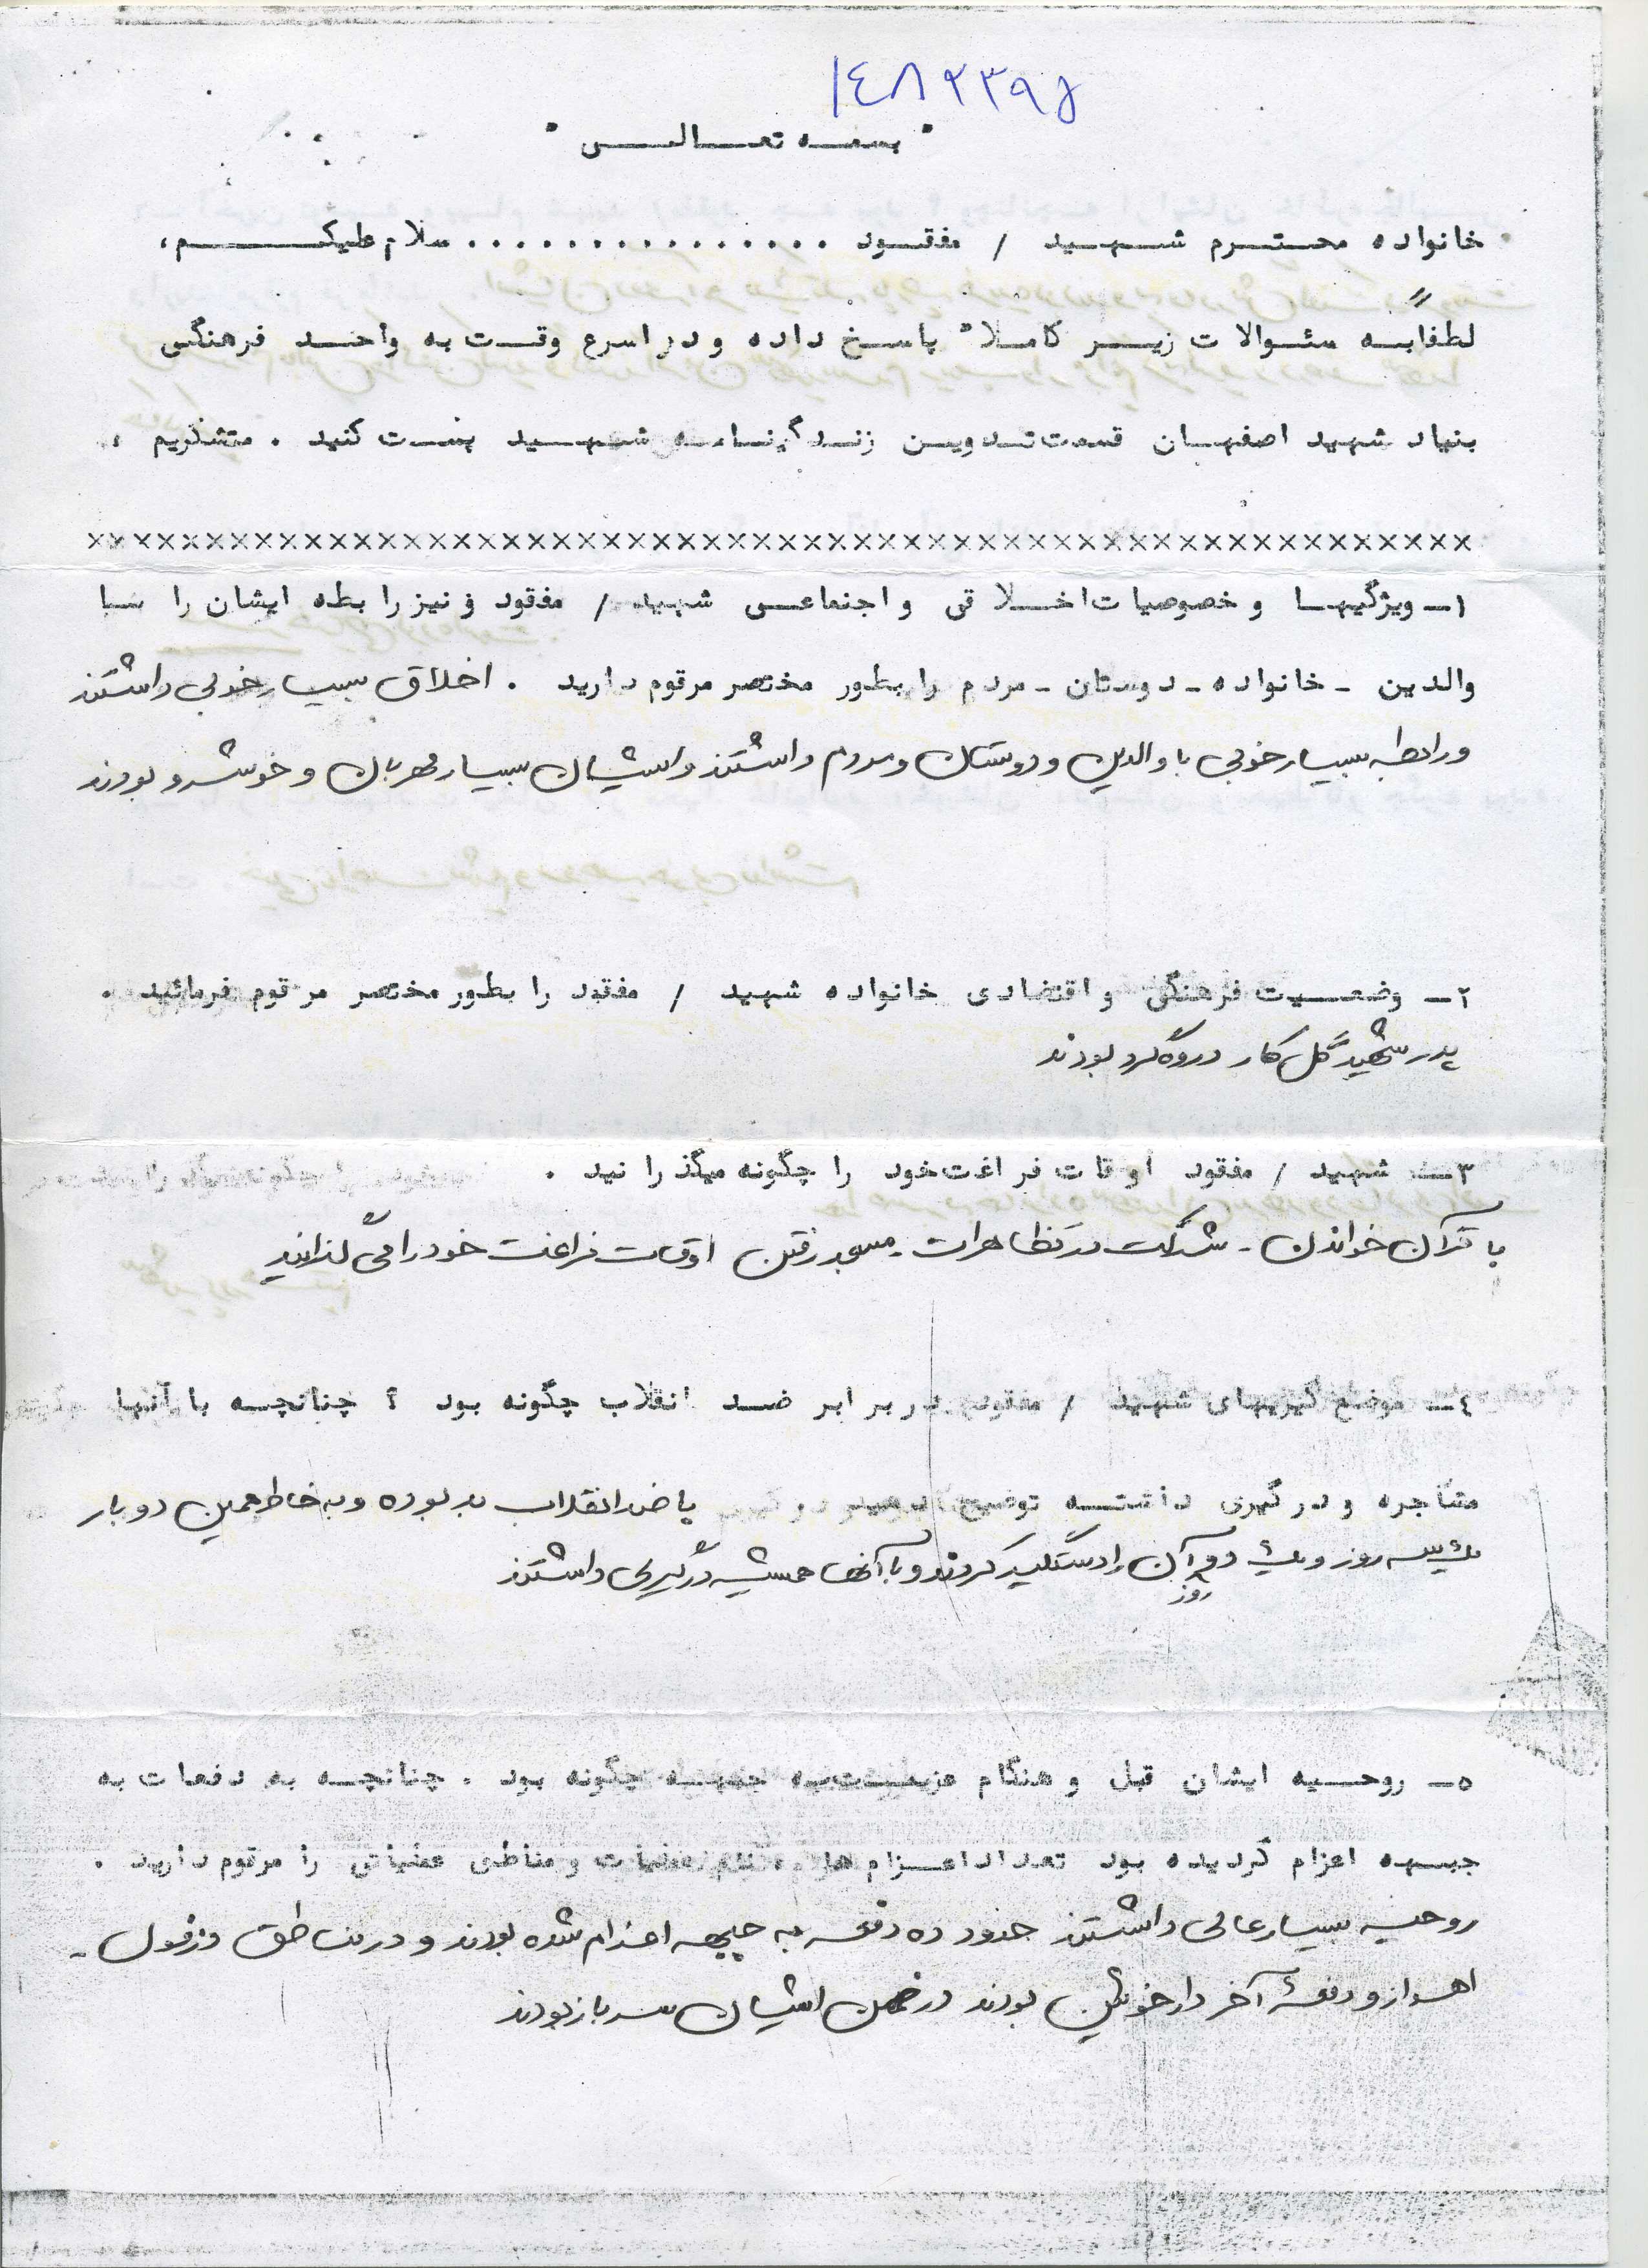 ۱٤۸۲۳۹۵
" بسمه تعالی "
خانواده محترم شهید / مفقود ............... سلام علیکم،
لطفاً به سئوالات زیر کاملا" پاسخ داده و در اسرع وقت به واحد فرهنگی
بنیاد شهید اصفهان قسمت تدوین زندگینامه شهید پست کنید . متشکریم .
xxxxxxxxxxxxxxxxxxxxxxxxxxxxxxxxxxxxxxxxxxxxxxxxxxxxxxxx
۱ـ ویژگیها و خصوصیات اخلاقی و اجتماعی شهید / مفقود و نیز رابطه ایشان را با
والدین ـ خانواده ـ دوستان ـ مردم را بطور مختصر مرقوم دارید . اخلاق بسیار خوبی داشتند
و رابطه بسیار خوبی با والدین و دوستان و مردم داشتند و ایشان بسیار مهربان و خوشرو بودند
۲ـ وضعیت فرهنگی و اقتصادی خانواده شهید / مفقود را بطور مختصر مرقوم فرمائید .
پدر شهید گل کار دروگر بودند
۳ـ شهید / مفقود اوقات فراغت خود را چگونه میگذرانید .
با قرآن خواندن ـ شرکت در تظاهرات ـ مسجد رفتن اوقات فراغت خود را می گذرانید
٤ـ موضع گیریهای شهید / مفقود در برابر ضد انقلاب چگونه بود ؟ چنانچه با آنها
مشاجره و درگیری داشته توضیح با ضد انقلاب بد بوده و به خاطر همین دو بار
روز و دو روز آن را دستگیر کردند و با آنها همیشه درگیری داشتند
۵ـ روحیه ایشان قبل و هنگام عزیمت به جبهه چگونه بود . چنانچه به دفعات به
جبهه اعزام گردیده بود تعداد اعزام ها، نام عملیات و مناطق عملیاتی را مرقوم دارید .
روحیه بسیار عالی داشتند حدود ده دفعه به جبهه اعزام شده بودند و در مناطق دزفول ـ
اهواز و دفعهٔ آخر دارخوین بودند در ضمن ایشان سرباز بودند